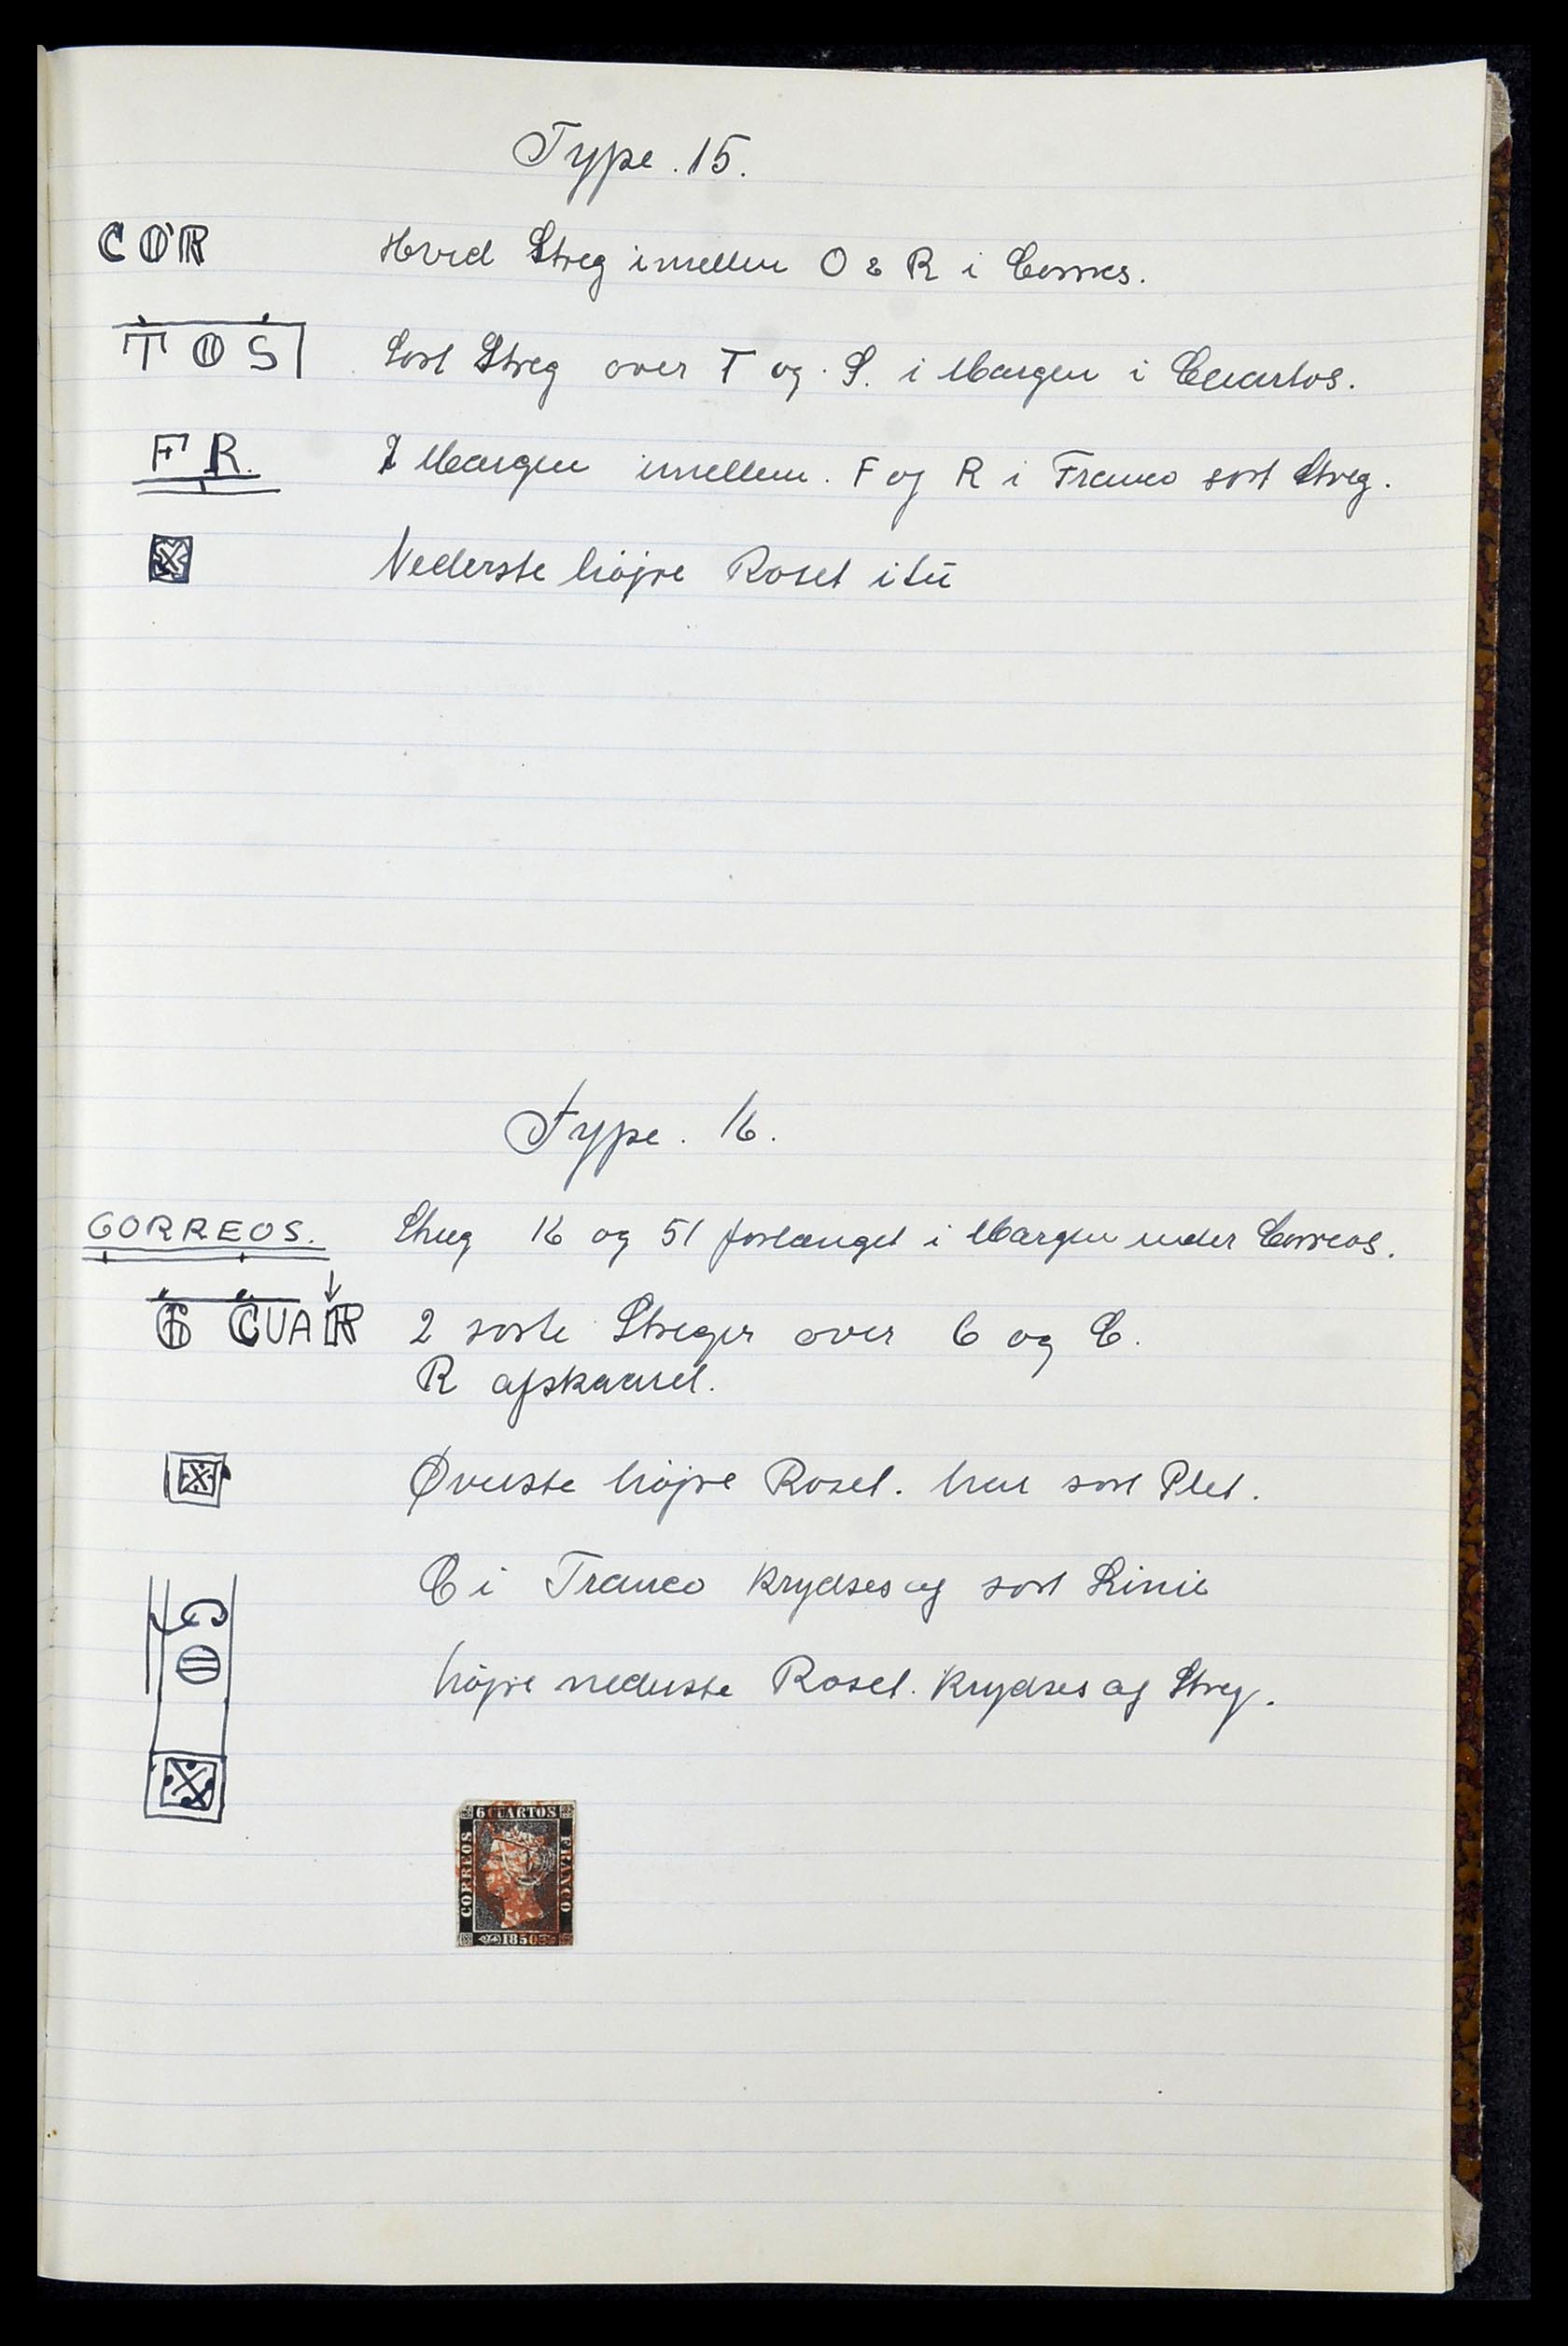 Type. 15.
COR Hvid Streg imellem O & R i Correos.
TOS Sort Streg over T og S. i Margen i Cuartos.
F R. I Margen imellem. F og R i Franco sort Streg.
Nederste højre Roset itu
Type. 16.
CORREOS. Streg 16 og 51 forlænget i Margen under Correos.
6 CUAR 2 sorte Streger over 6 og C.
R afskaaret.
Øverste højre Roset. har sort Plet.
CO C i Franco krydses af sort Linie
højre nederste Roset. krydses af Streg.
6 CUARTOS
CORREOS
FRANCO
1850